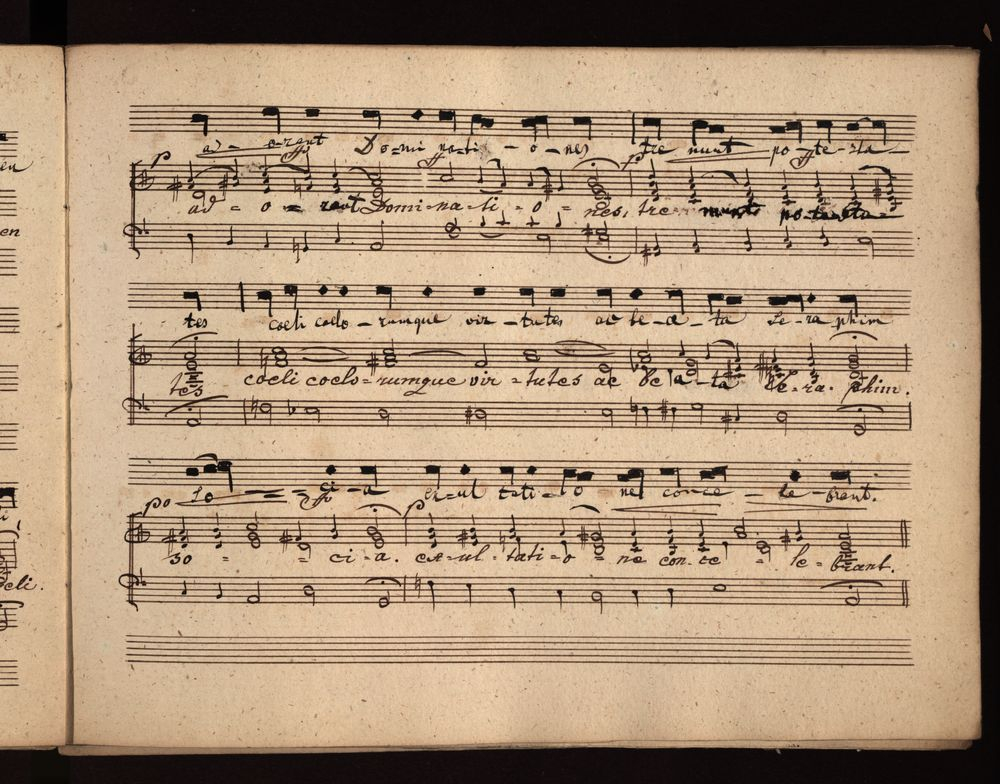 ad - orant Domi nati - o - nes tre munt po - te - sta -
p p
ad = o = rant Domi = na = ti = o = nes, tre munt potesta =
tes coeli coelo - rumque vir - tutes ac be - a - ta Se - ra phim
tes coeli coelo = rumque vir = tutes ac be a = ta Se = ra - phim.
so - - ci - a ex - ul tati - o ne conce - le - brant.
po p
so = = ci - a. ex = ul - tati = o = ne con - ce = le = brant.
en
en
eli.